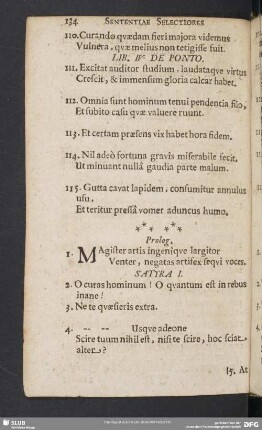 134 SENTENTIAE SELECTIORES
110. Curando quædam fieri majora videmus
Vulnera, quæ melius non tetigisse fuit.
LIB. IV. DE PONTO.
111. Excitat auditor studium, laudataqve virtus
Crescit, & immensum gloria calcar habet.
112. Omnia sunt hominum tenui pendentia filo,
Et subito casu qvæ valuere ruunt.
113. Et certam præsens vix habet hora fidem.
114. Nil adeò fortuna gravis miserabile fecit,
Ut minuant nullâ gaudia parte malum.
115. Gutta cavat lapidem, consumitur annulus
usu,
Et teritur pressâ vomer aduncus humo.
* * * *
Prolog.
1. Magister artis ingeniqve largitor
Venter, negatas artifex seqvi voces.
SATYRA I.
2. O curas hominum! O qvantum est in rebus
inane!
3. Ne te qvæsieris extra.
4. -- -- Usqve adeone
Scire tuum nihil est, nisi te scire, hoc sciat
alter?
15. At
SLUB
DFG